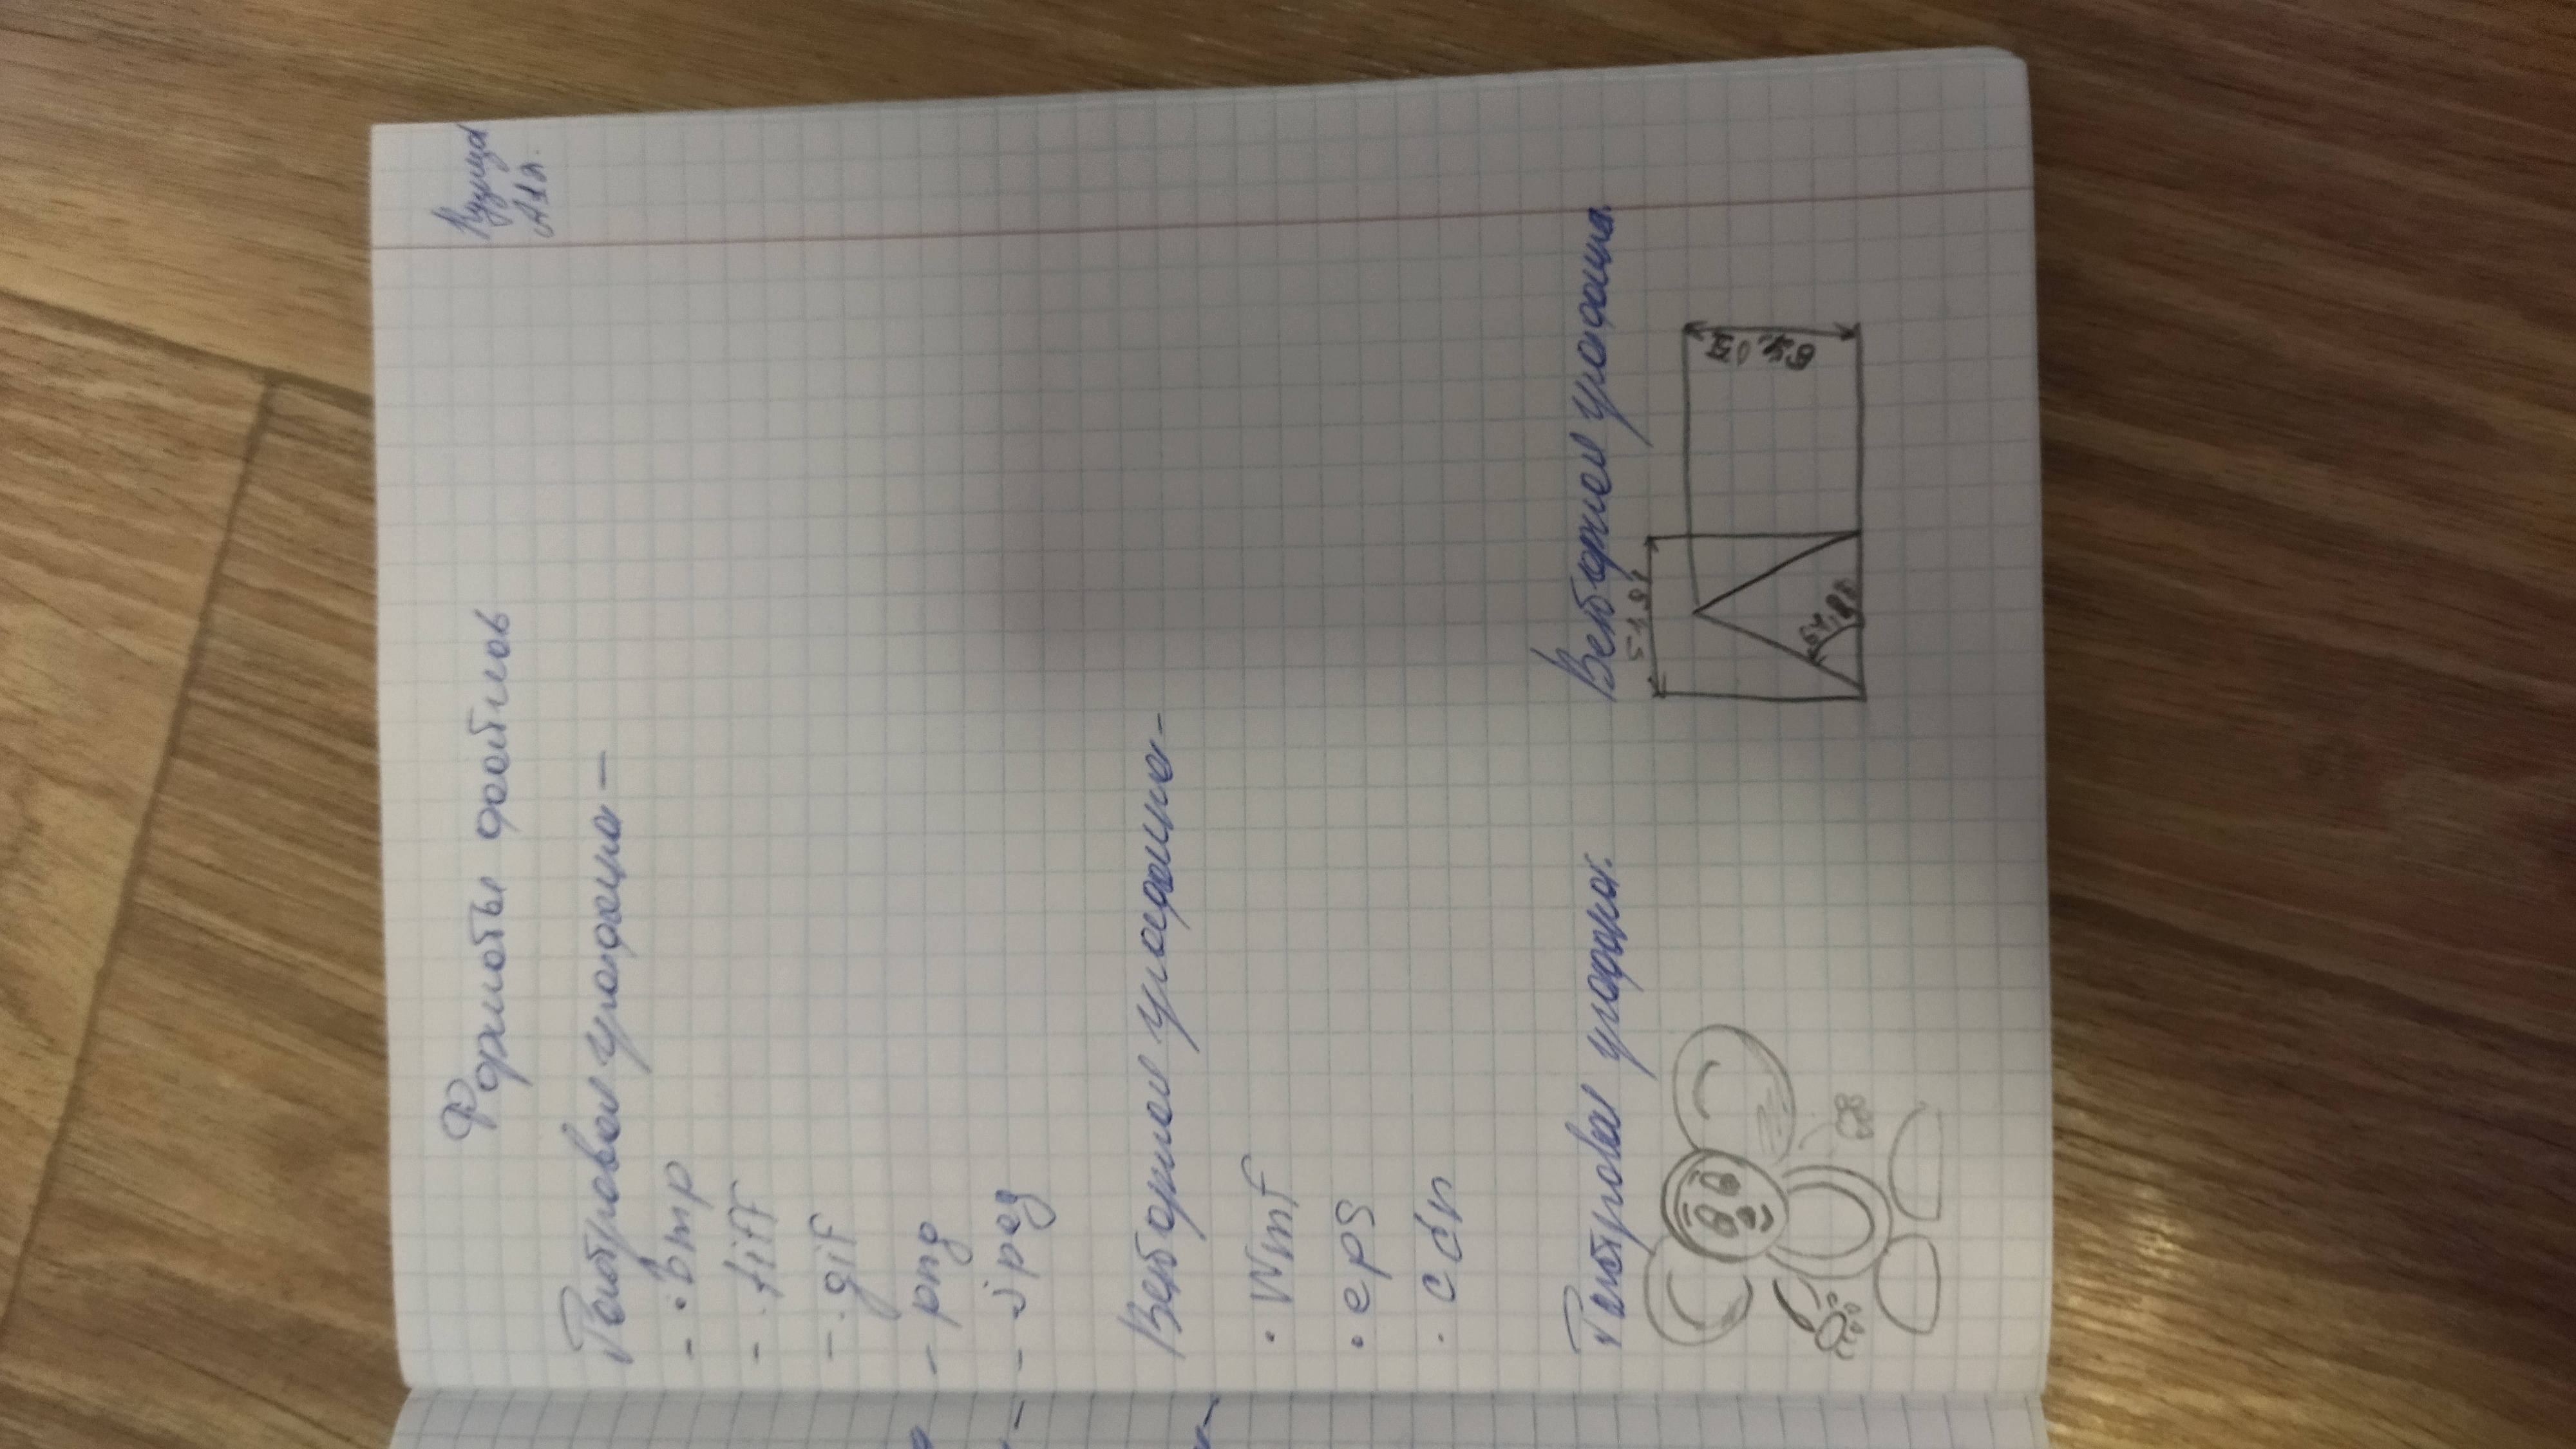 Форматы файлов
Растровая графика -
- .bmp
- .tiff
- .gif
- png
- jpeg
Векторная графика -
. Wmf
. eps
. cdr
Растровая график. Векторная графика.